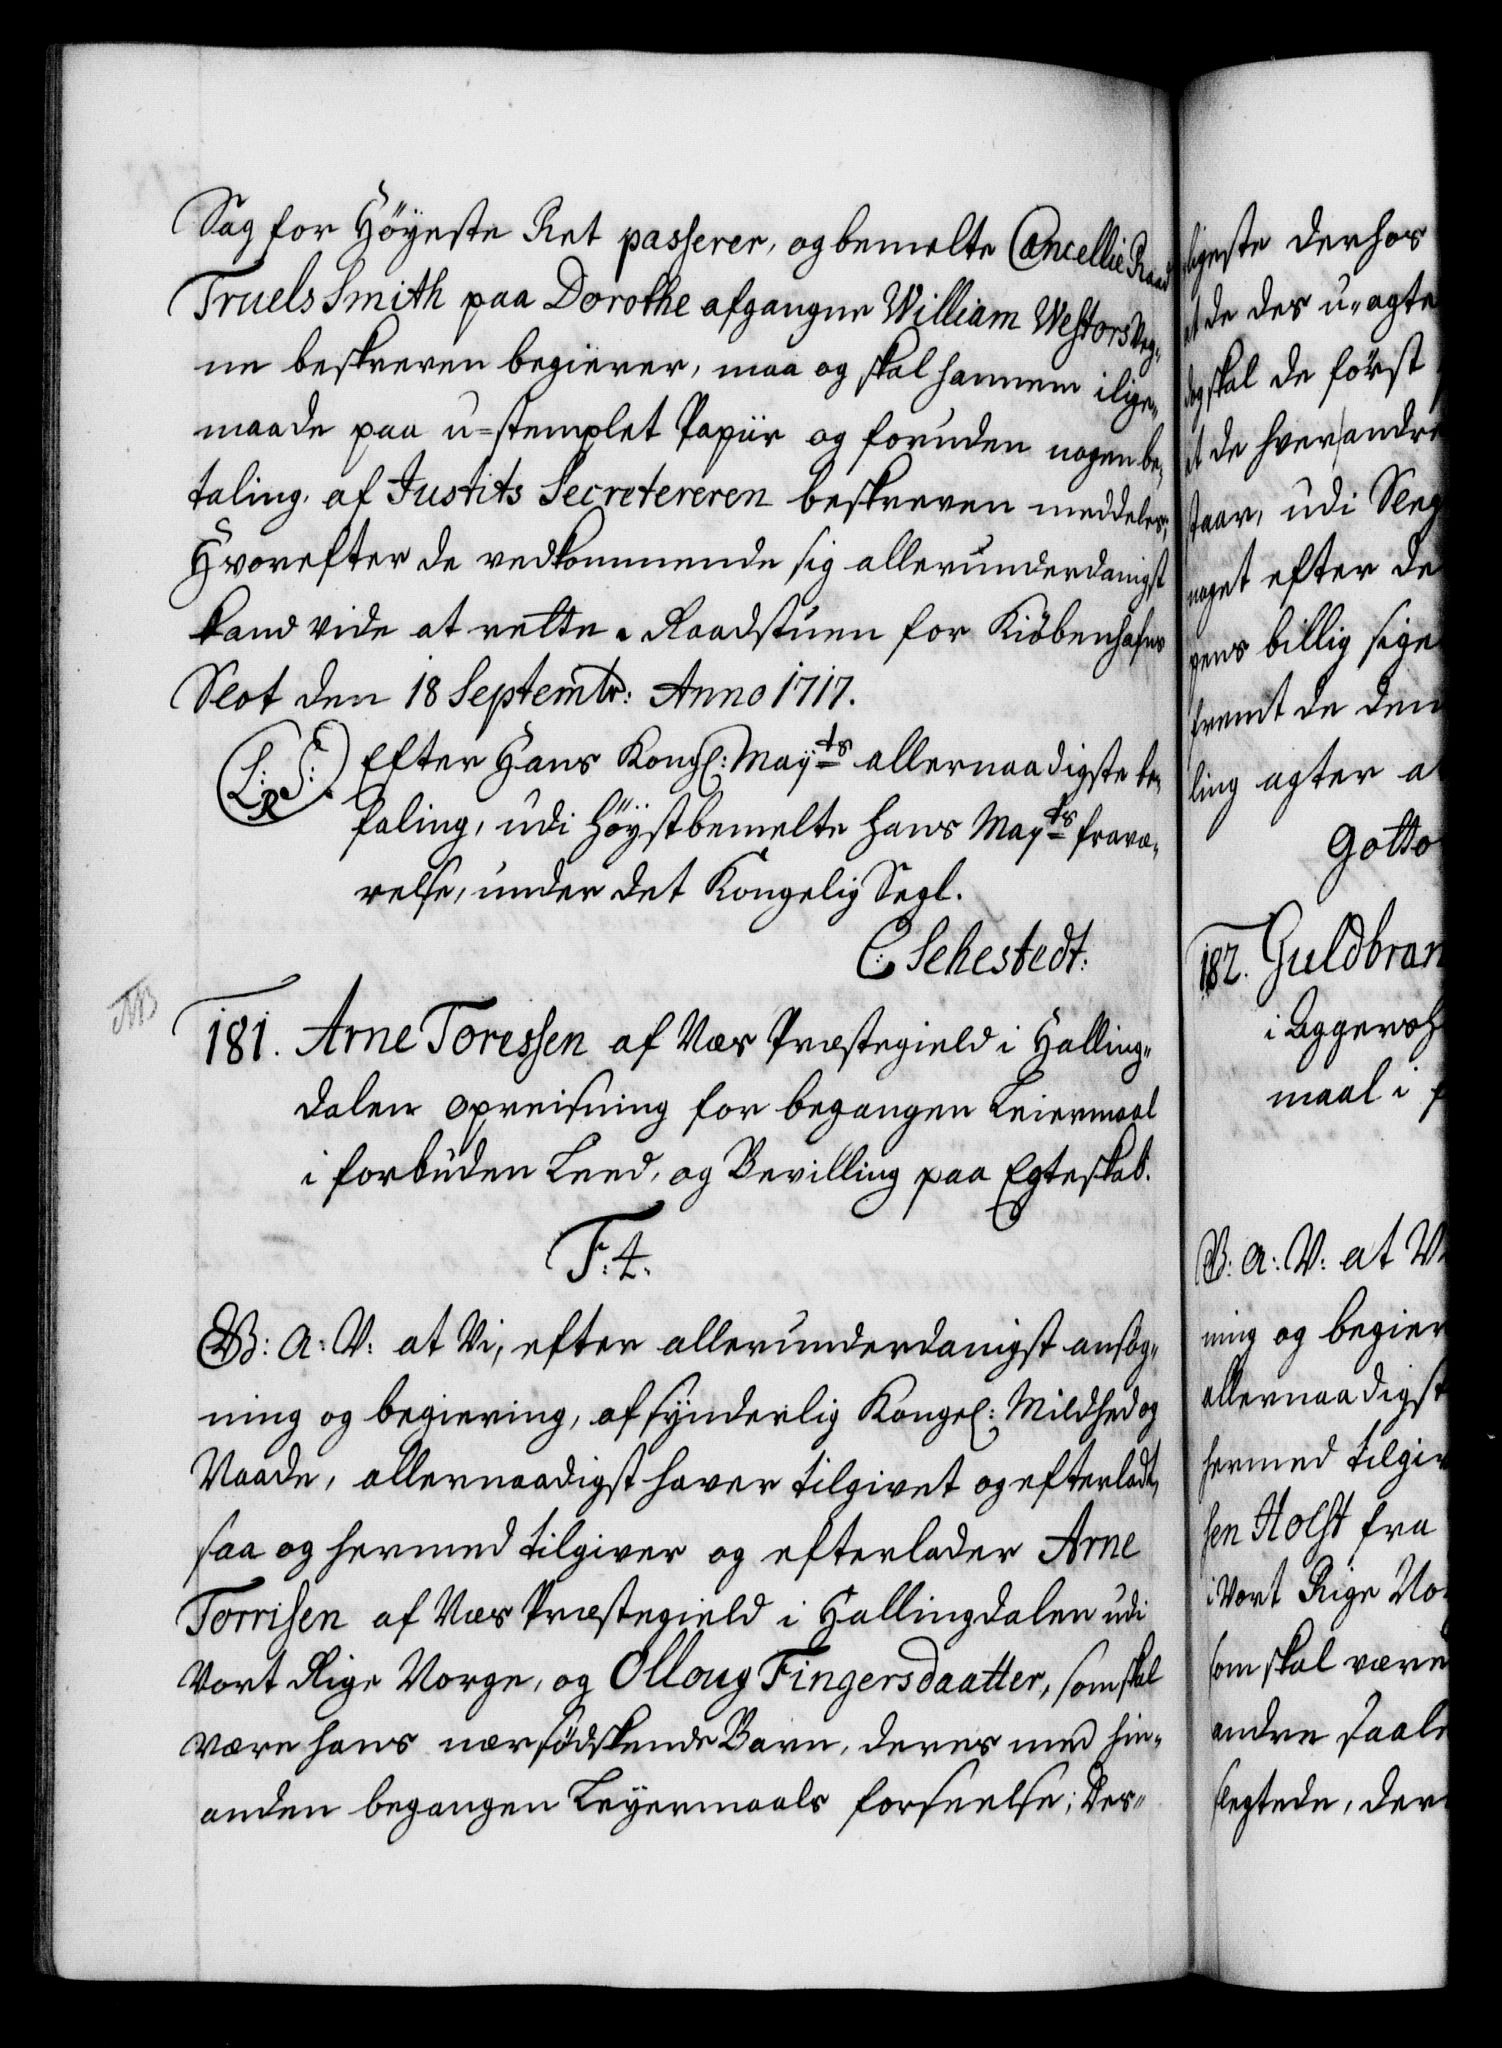 Sag for Höyeste Ret passerer, og bemelte Cancellie Raad
Truels Smith paa Dorothe afgangne William Westors Veg-
ne beskreven begierer, maa og skal hannem i lige-
maade paa u-stemplet Papiir og foruden nogen be-
taling, af Justits Secretereren beskreven meddeles;
Hvorefter de vedkommende sig allerunderdanigst
kand vide at rette. Raadstuen for Kiöbenhafns
Slot den 18 Septembr: Anno 1717.
L: S:
R
Efter Hans Kongl: May:ts allernaadigste be-
faling, udi Höystbemelte hans May:ts fravæ-
relse, under det Kongelig Segl.
C: Sehestedt:
NB
181. Arne Toressen af Næs Præstegield i Halling-
dalen opreisning for begangen Leiermaal
i forbuden Leed, og Bevilling paa Egteskab.
F: 4.
G: A: V: at Vi, efter allerunderdanigst ansøg-
ning og begiering, af synderlig Kongel: Mildhed og
Naade, allernaadigst haver tilgivet og efterladt,
saa og hermed tilgiver og efterlader Arne
Torrisen af Næs Præstegield i Hallingdalen udi
Vort Rige Norge, og Olloug Fingersdaatter, som skal
være hans nærsødskende Barn, deres med hin-
anden begangen Leyermaals forseelse; Des-
ligeste derhos
at de des u-agte
dog skal de först
at de hver andre
staar, udi Sleg
noget efter de
pens billig sige
fremt de den
ling agter a
Gotto
182. Guldbran
i Aggersh
maal i f
G: A: V: at V
ning og begier
allernaadigst
hermed tilgiv
sen Holst fra
i Vort Rige No
som skal være
andre saale
slegtede, der